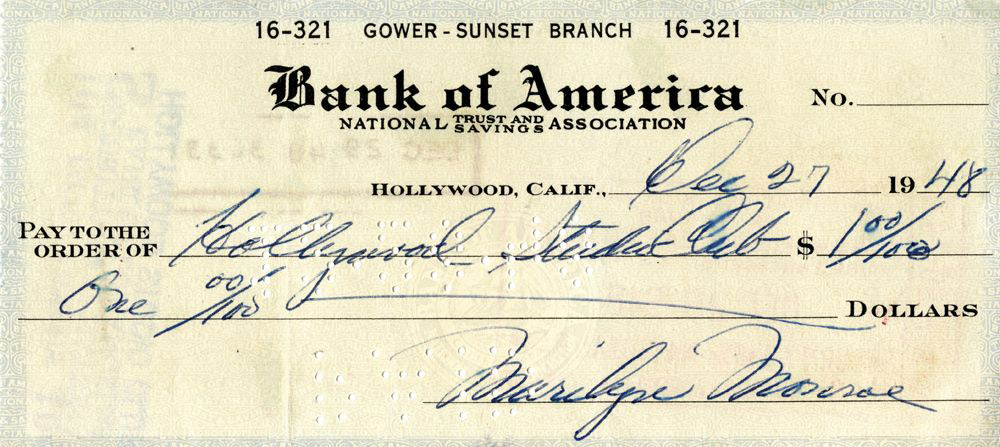 16-321 GOWER-SUNSET BRANCH 16-321
Bank of America
NATIONAL TRUST AND SAVINGS ASSOCIATION
No.
HOLLYWOOD, CALIF., Dec 27 1948
PAY TO THE ORDER OF Hollywood Studio Club $ 1 00/100
One 00/100 DOLLARS
Marilyn Monroe